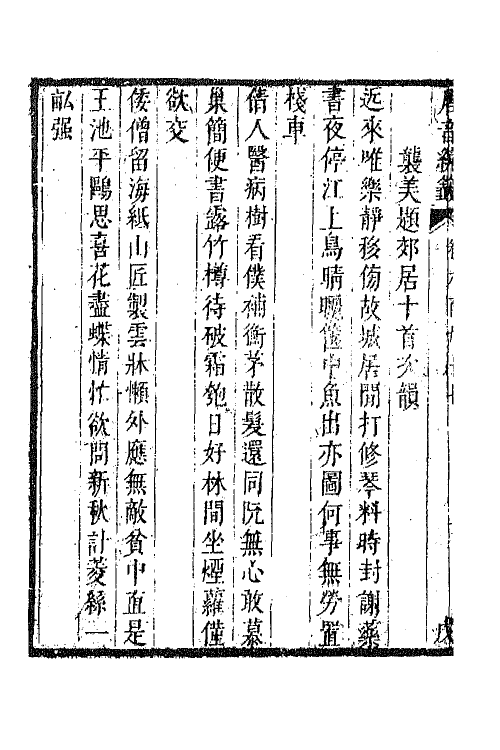 唐音統籤
襲美題郊居十首次韻
近來唯樂靜移傍故城居閒打修琴料時封謝藥
書夜停江上鳥晴曬篋中魚出亦圖何事無勞置
棧車
倩人醫病樹看僕補衡茅散髮還同阮無心敢慕
巢簡便書露竹樽待破霜匏日好林間坐煙蘿僅
欲交
倭僧留海紙山匠製雲牀懶外應無敵貧中直是
王池平鷗思喜花盡蝶情忙欲問新秋計菱絲一
畝强